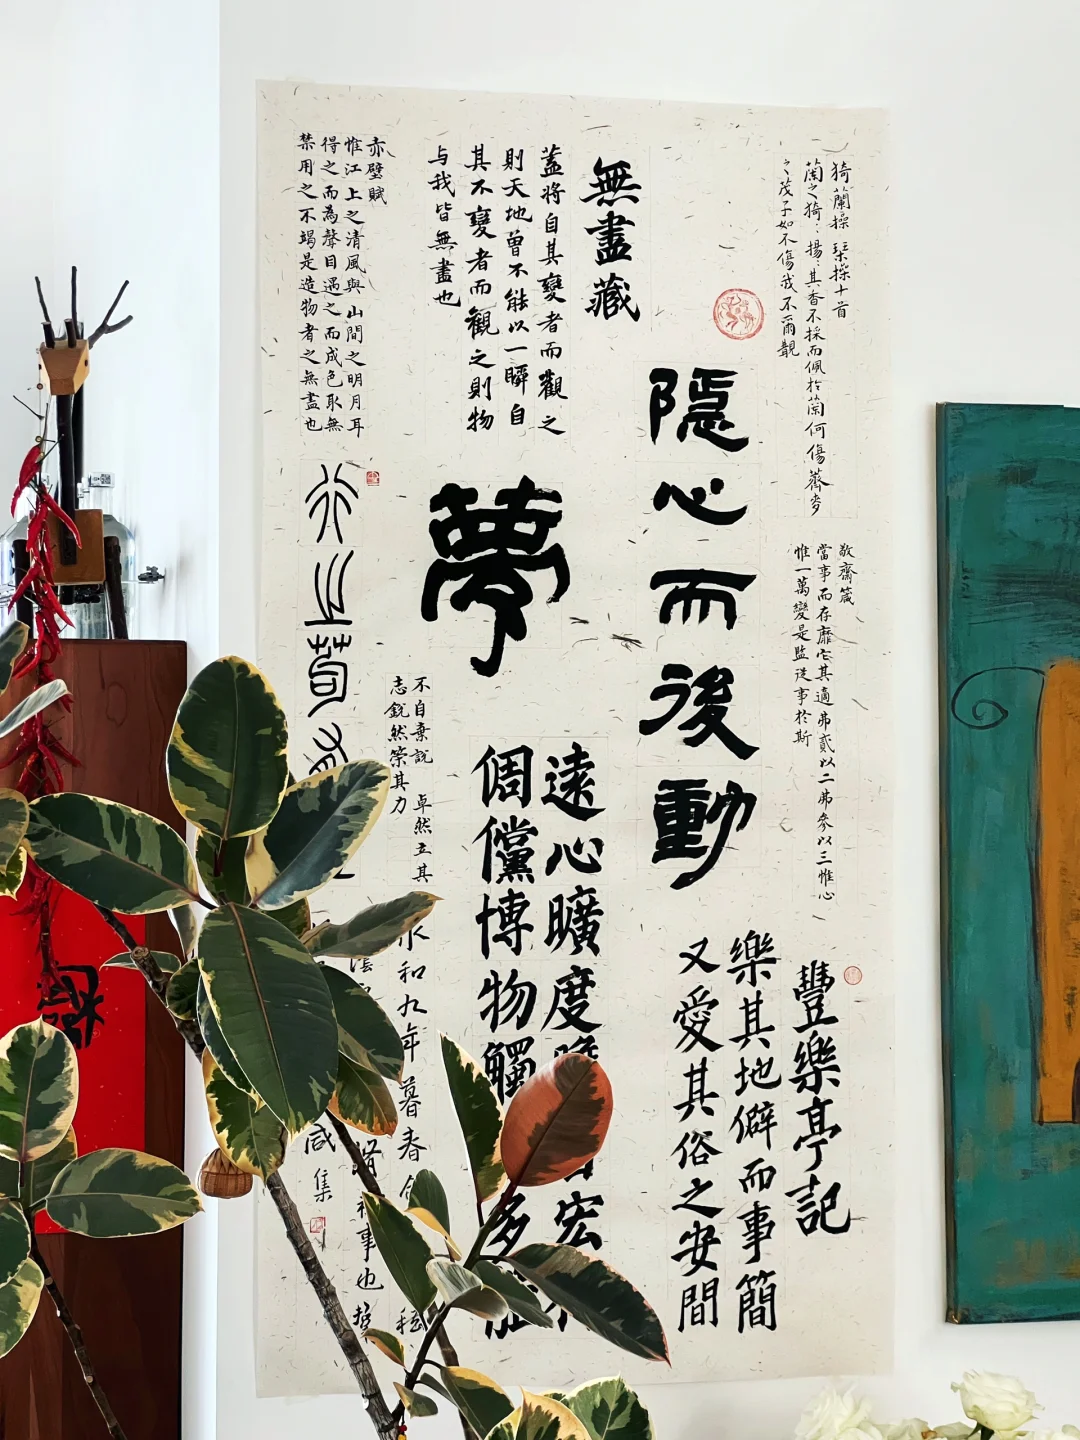 猗蘭操 琹操十首
蘭之猗：揚：其香不採而佩於蘭何傷薺麥
之茂子如不傷我不爾觀
敬齋箴
當事而存靡它其適弗貳以二弗參以三惟心
惟一萬變是監從事於斯
豐樂亭記
樂其地僻而事簡
又愛其俗之安閒
隱心而後動
無盡藏
蓋將自其變者而觀之
則天地曾不能以一瞬自
其不變者而觀之則物
与我皆無盡也
夢
遠心曠度
宏
倜儻博物觸
多能
不自棄説 卓然立其
志銳然策其力
永和九年暮春
禊事也
咸集
赤壁賦
惟江上之清風與山間之明月耳
得之而為聲目遇之而成色取無
禁用之不竭是造物者之無盡也
行之苟有